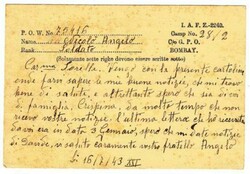 I. A. F. Z.-2240.
P. O. W. No. 79416
Camp No. 28/2
Name: Angelo
C/o G. P. O.
Rank: Soldato
BOMBAY.
(Solamente sotto righe devono essere scritte sotto)
Carina Sorella, Vengo con la presente cartolina
onde farvi sapere le mie buone notizie, che mi trovo
bene di salute, e altrettanto spero che sia di voi
di famiglia, Crispina, da molto tempo che non
ricevo vostre notizie. l'ultima lettera che ho ricevuta
datava era in data 3 Gennaio, spero che mi date notizie
di saluti caramente vostro fratello Angelo
16/7/43 XXI